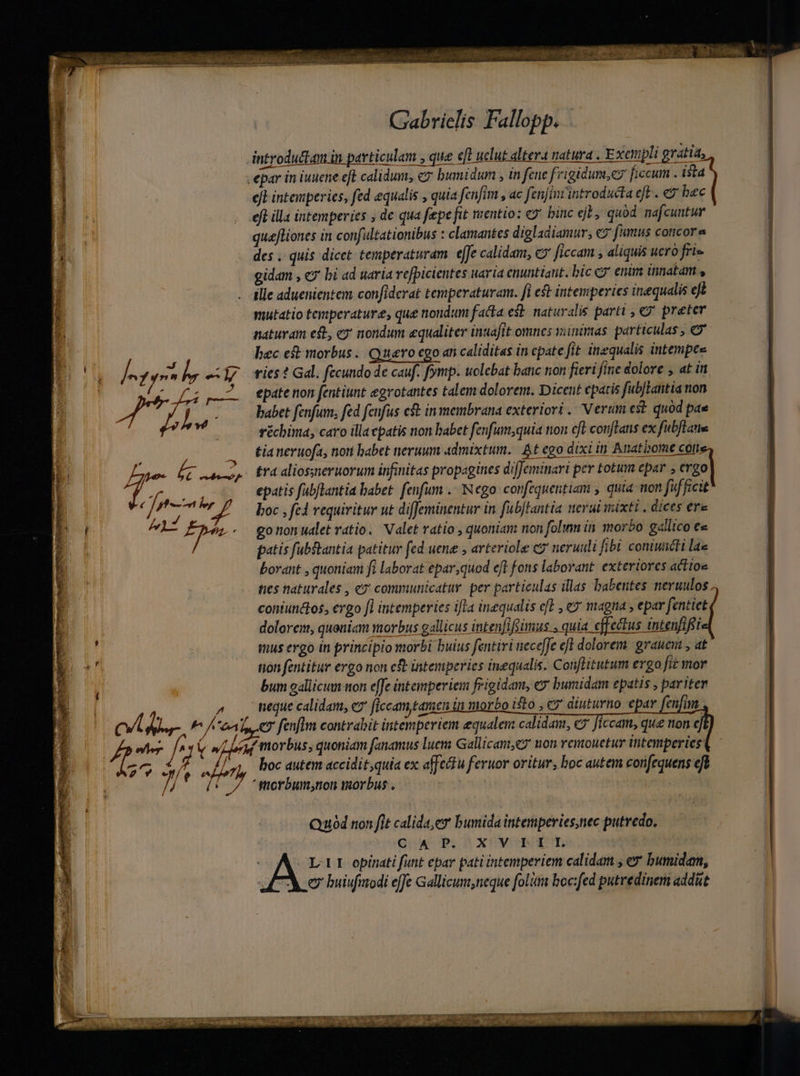 Gabrielis Fallopp.
introductam in particulam , quæ eſt uelut altera natura . Exempli gratia,
epar in iuuene eſt calidum, & humidum , in ſene frigidum,& ſiccum . iſta
eſt intemperies, ſed æqualis , quia ſenſim , ac ſenſim introducta eſt . & hæc
eſt illa intemperies , de qua ſæpe fit mentio: & hinc eſt, quòd naſcuntur
quæſtiones in conſultationibus : clamantes digladiamur, & ſumus concor=
des . quis dicet temperaturam eſſe calidam, & ſiccam , aliquis uerò fri=
gidam , & hi ad uaria reſpicientes uaria enuntiant. hic & enim innatam ,
ille aduenientem conſiderat temperaturam. ſi eſt intemperies inæqualis eſt
mutatio temperaturæ, quæ nondum facta eſt naturalis parti , & præter
naturam eſt, & nondum æqualiter inuaſit omnes minimas particulas , &
hæc eſt morbus . Quæro ego an caliditas in epate ſit inæqualis intempe=
ries ? Gal. ſecundo de cauſ. ſymp. uolebat hanc non fieri ſine dolore , at in
epate non ſentiunt ægrotantes talem dolorem. Dicent epatis ſubſtantia non
habet ſenſum, ſed ſenſus eſt in membrana exteriori . Verum eſt quòd pa=
rẽchima, caro illa epatis non habet ſenſum,quia non eſt conſtans ex ſubſtan=
tia neruoſa, non habet neruum admixtum. At ego dixi in Anathome cõtte,
tra alios;neruorum infinitas propagines diſſeminari per totum epar , ergo
epatis ſubſtantia habet ſenſum . Nego conſequentiam , quia non ſufficit
hoc , ſed requiritur ut diſſeminentur in ſubſtantia nerui mixti . dices er=
go non ualet ratio. Valet ratio , quoniam non ſolum in morbo gallico e=
patis ſubſtantia patitur ſed uenæ , arteriolæ & neruuli ſibi coniuncti la=
borant , quoniam ſi laborat epar,quod eſt fons laborant exteriores actio=
nes naturales , & communicatur per particulas illas habentes neruulos
coniunctos, ergo ſi intemperies iſta inæqualis eſt , & magna , epar ſentiet
dolorem, quoniam morbus gallicus intenſiſſimus , quia effectus intenſiſſi=
mus ergo in principio morbi huius ſentiri neceſſe eſt dolorem grauem , at
non ſentitur ergo non eſt intemperies inæqualis. Conſtitutum ergo ſit mor
bum gallicum non eſſe intemperiem frigidam, & humidam epatis , pariter
neque calidam, & ſiccam,tamen in morbo iſto , & diuturno epar ſenſim,
& ſenſim contrahit intemperiem æqualem calidam, & ſiccam, quæ non eſt
morbus, quoniam ſanamus luem Gallicam,& non remouetur intemperies
hoc autem accidit,quia ex affectu feruor oritur, hoc autem conſequens eſt
morbum,non morbus .
Quòd non ſit calida,& humida intemperies,nec putredo.
CAP. XVIII.
ALII opinati ſunt epar pati intemperiem calidam , & humidam,
& huiuſmodi eſſe Gallicum,neque ſolùm hoc:ſed putredinem addũt